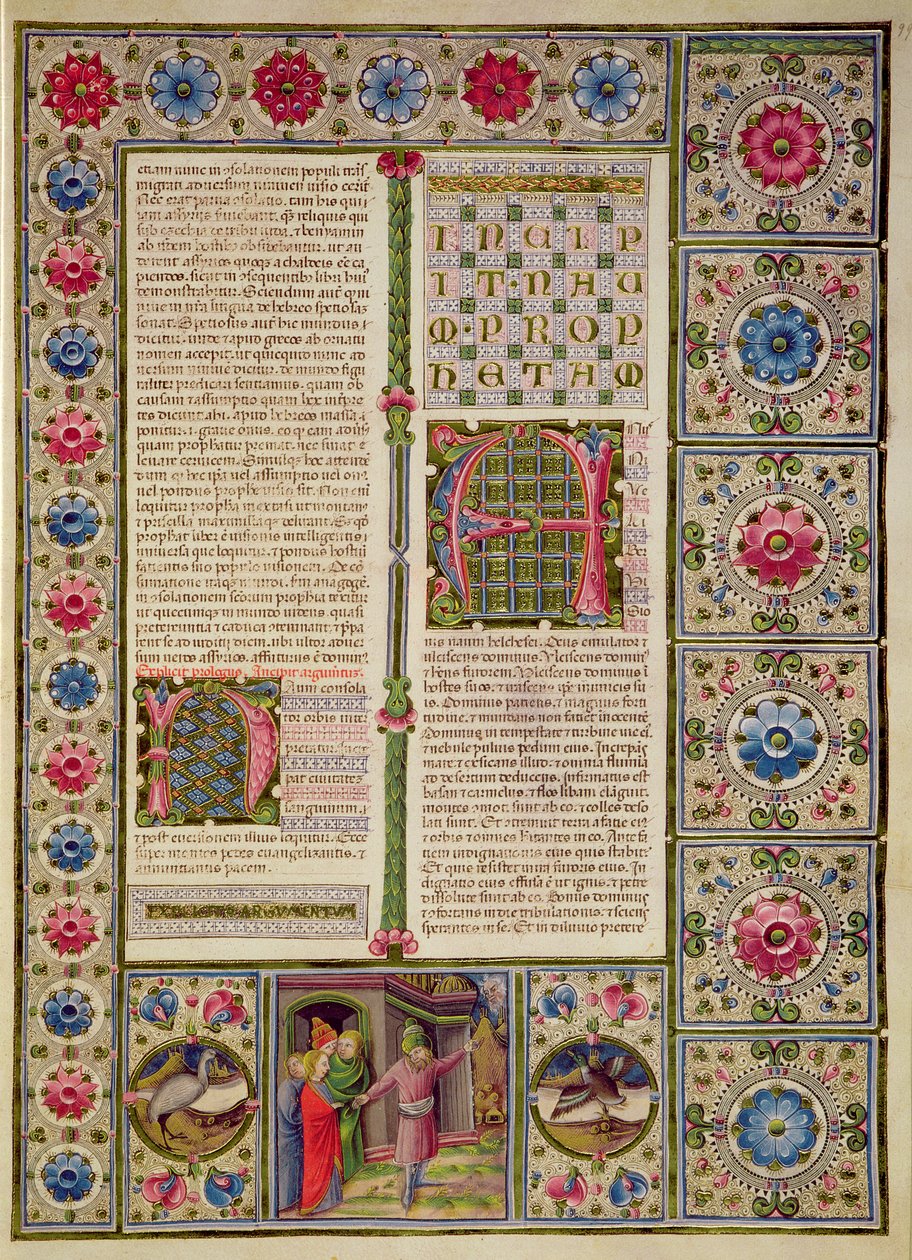 etiam nunc in ɔsolationem populi tras
migrati adversum niniven visio cerit̄
Nec erat parva ɔsolatio, tam his qui
iam assyriis serviebant, qᷤ reliquis qui
sub ezechia de tribu iuda, ⁊ beniamin
ab isdem hostibus obsidebantur, ut au
dirent assyrios quoqᷤ a chaldeis eē ca
piendos, sicut in ɔsequentibus libri huiꝰ
demonstrabitur. Sciendum aut̄ ꝙ ni
nive in nr̄a lingua de hebreo spetiosa
sonat. Spetiosus aut̄ hic mundus ⁊
dicitur, unde ⁊ apud grecos ab ornatu
nomen accepit, ut quicquid nunc ad
versum niniven dicitur, de mundo figu
raliter predicari sentiamus, quam ob
causam ⁊ assumptio quam lxx interpre
tes dicunt abi, apud hebreos massa a
ponitur ⁊ grave onus, eo ꝙ eam adv̄sū
quam prophatur premat, nec sinat e
levare cervicem. Simulqᷤ hoc attenden
dum
vel pondus prophetalis sit. Non eni
loquitur propha in extasi ut montanꝰ
⁊ priscilla maximillaqᷤ delirant. Sȝ qd̄
prophat liber ē visionis intelligentis
universa que loquitur, ⁊ pondus hostiū
facientis suo populo visionem. De ɔ̄
sumatione itaqᷤ mundi
in ɔsolationem scōrum prophia texitur
ut quecumqᷤ in mundo videns, quasi
pretereuntia ⁊ caduca ɔtennant, ⁊ p̄pa
rent se ad iuditii diem, ubi ultor adver
sum veros assyrios, affuturus ē domin̄ꝰ.
Explicit prologus. Incipit argumētus.
Naum consola
tor orbis inter
pretatur. Incr̄e
pat civitatē
sanguinum, ⁊
⁊ post eversionem illius loquitur. Ecce
super montes pedes evangelizantis, ⁊
annuntiantis pacem.
EXPLICIT ARGVMENTVM
INCIP
IT·NAU
M·PROP
HETAM
ONus
Ni
ve
Li
ber
vi
sio
nis naum helchesei. Deus emulator ⁊
ulciscens dominus. Ulciscens dominꝰ
⁊ hn̄s furorem. Ulciscens dominus ī
hostes suos, ⁊ irascens ip̄e inimicis su
is. Dominus patiens, ⁊ magnus forti
tudine, ⁊ mundans non faciet inocentē
Dominus in tempestate ⁊ turbine vie eiꝰ
⁊ nebule pulvis pedum eius. Increpās
mare, ⁊ exsicans illud, ⁊ omnia flumina
ad desertum deducens. Infirmatus est
basan ⁊ carmelus, ⁊ flos libani elāguit
montes ɔmoti sunt ab eo, ⁊ colles deso
lati sunt. Et ɔtremuit terra a facie eiꝰ
⁊ orbis ⁊ omnes hītantes in eo. Ante fa
tiem indignationis eius quis stabit?
Et quis resistet in ira furoris eius. In
dignatio eius effusa ē ut ignis, ⁊ petre
dissolute sunt ab eo. Bonus dominus
⁊ ɔfortans in die tribulationis, ⁊ sciens
sperantes in se. Et in diluvio pretere